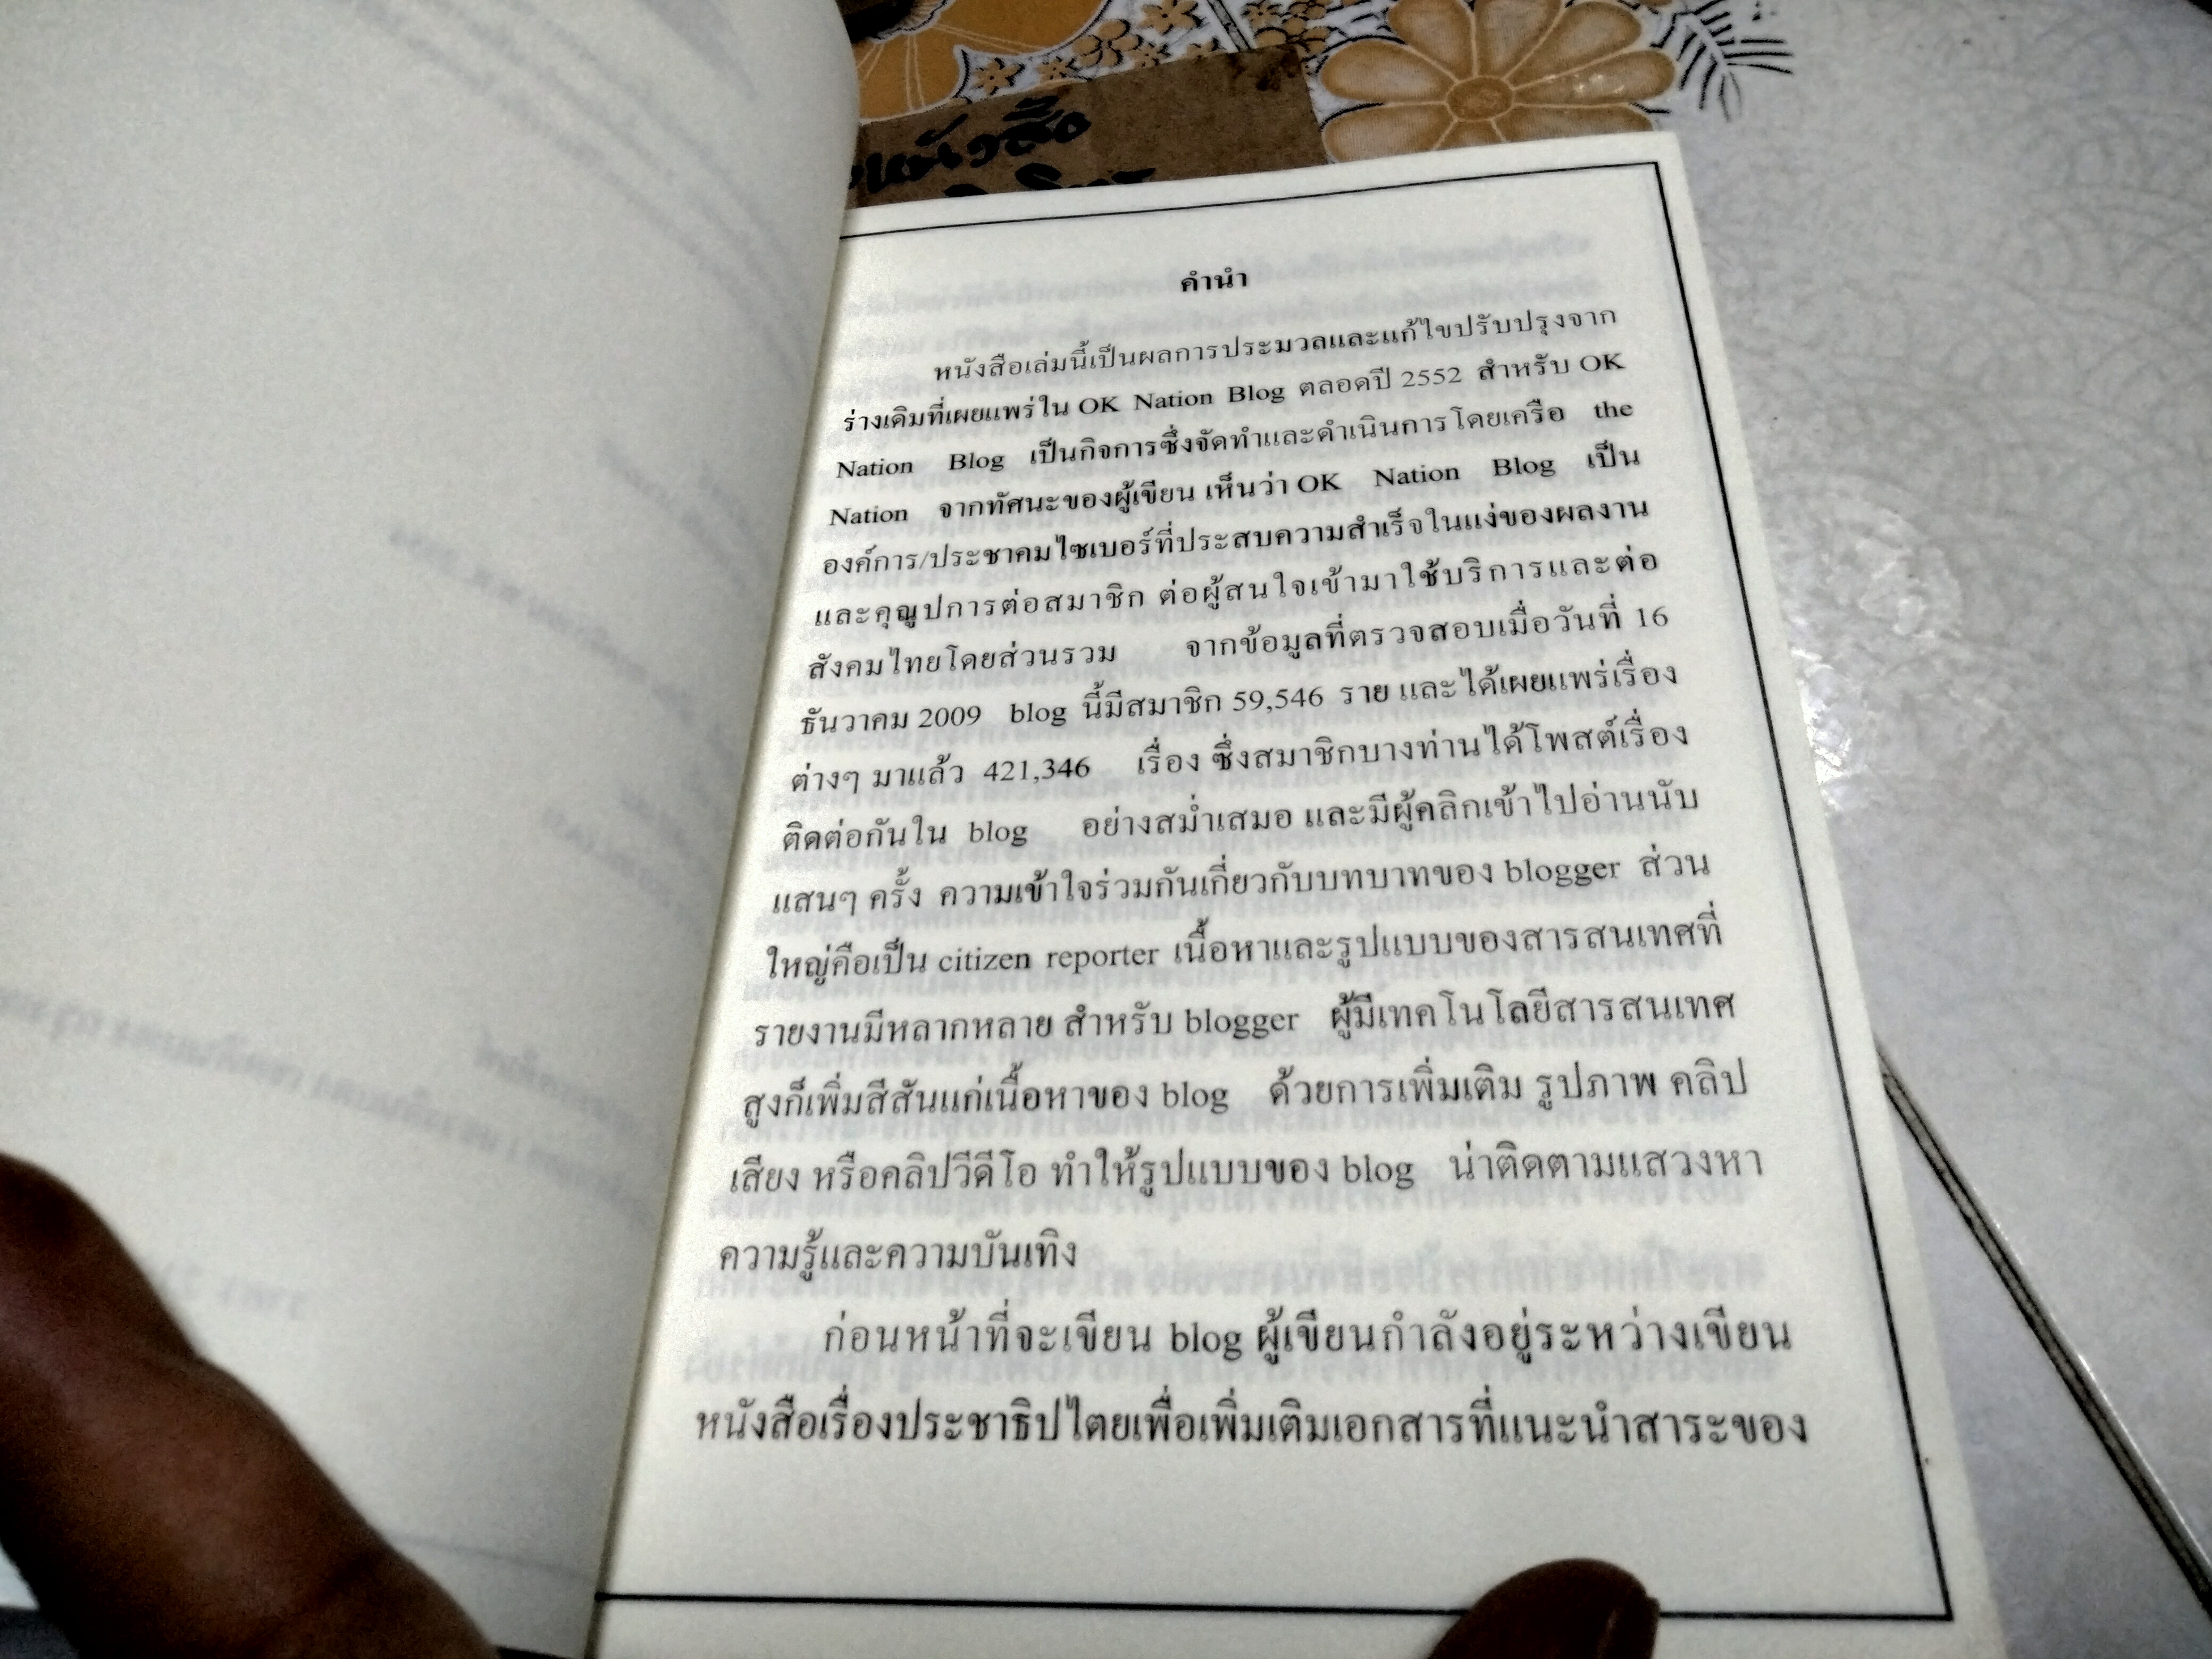 คำนำ
หนังสือเล่มนี้เป็นผลการประมวลและแก้ไขปรับปรุงจาก
ร่างเดิมที่เผยแพร่ใน OK Nation Blog ตลอดปี 2552 สำหรับ OK
Nation Blog เป็นกิจการซึ่งจัดทำและดำเนินการโดยเครือ the
Nation จากทัศนะของผู้เขียน เห็นว่า OK Nation Blog เป็น
องค์การ/ประชาคมไซเบอร์ที่ประสบความสำเร็จในแง่ของผลงาน
และคุณูปการต่อสมาชิก ต่อผู้สนใจเข้ามาใช้บริการและต่อ
สังคมไทยโดยส่วนรวม จากข้อมูลที่ตรวจสอบเมื่อวันที่ 16
ธันวาคม 2009 blog นี้มีสมาชิก 59,546 ราย และได้เผยแพร่เรื่อง
ต่างๆ มาแล้ว 421,346 เรื่อง ซึ่งสมาชิกบางท่านได้โพสต์เรื่อง
ติดต่อกันใน blog อย่างสม่ำเสมอ และมีผู้คลิกเข้าไปอ่านนับ
แสนๆ ครั้ง ความเข้าใจร่วมกันเกี่ยวกับบทบาทของ blogger ส่วน
ใหญ่คือเป็น citizen reporter เนื้อหาและรูปแบบของสารสนเทศที่
รายงานมีหลากหลาย สำหรับ blogger ผู้มีเทคโนโลยีสารสนเทศ
สูงก็เพิ่มสีสันแก่เนื้อหาของ blog ด้วยการเพิ่มเติม รูปภาพ คลิป
เสียง หรือคลิปวีดีโอ ทำให้รูปแบบของ blog น่าติดตามแสวงหา
ความรู้และความบันเทิง
ก่อนหน้าที่จะเขียน blog ผู้เขียนกำลังอยู่ระหว่างเขียน
หนังสือเรื่องประชาธิปไตยเพื่อเพิ่มเติมเอกสารที่แนะนำสาระของ